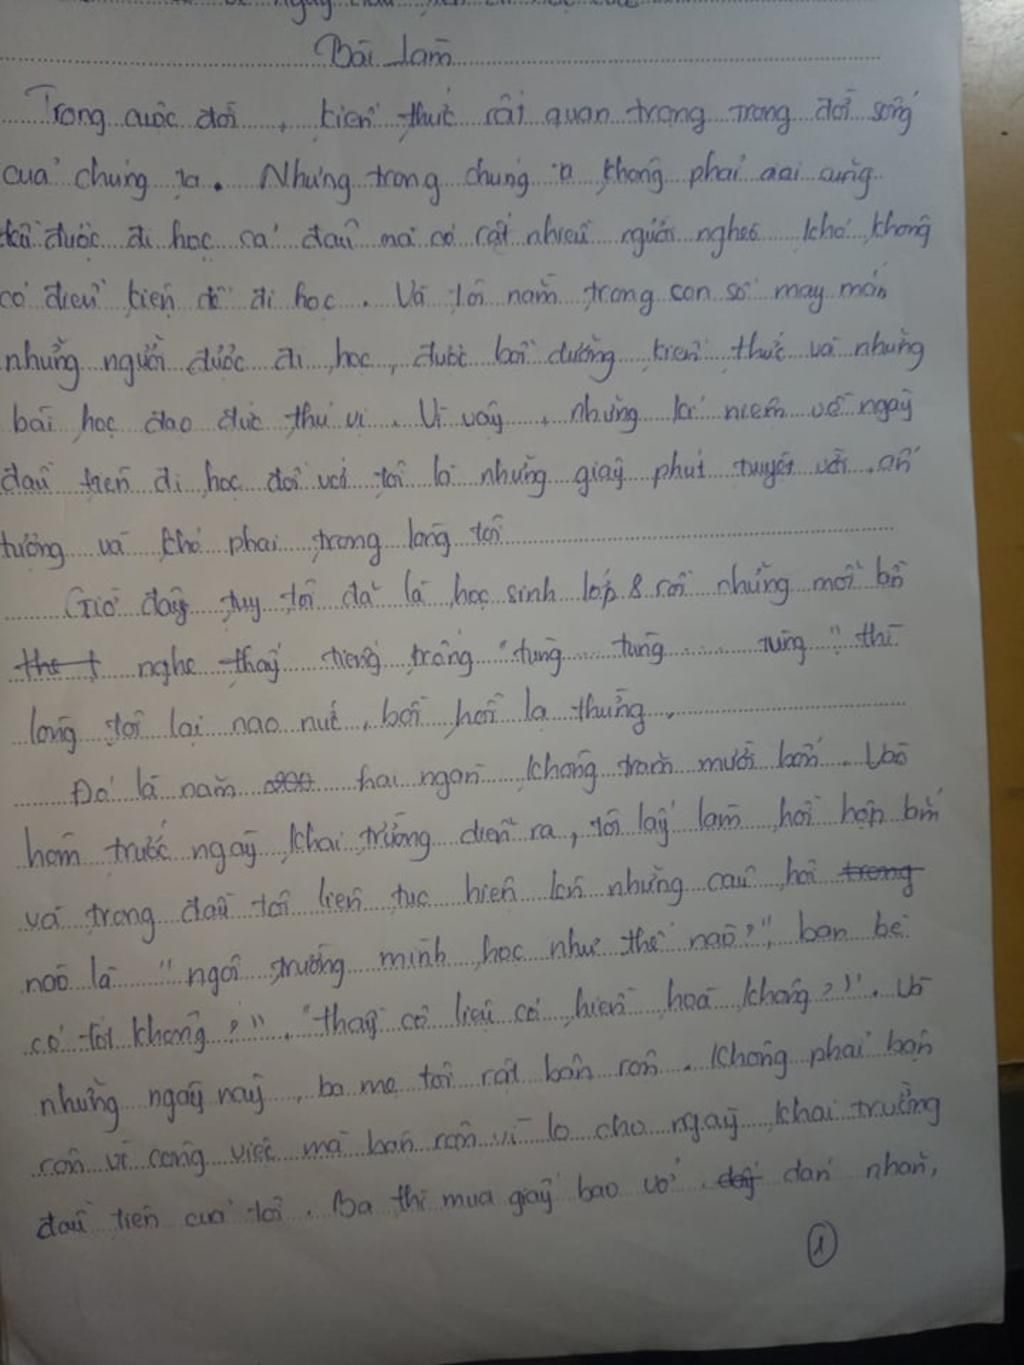 ngày đầu tiên đi học của
Bài làm
Trong cuộc đời, kiến thức rất quan trọng trong đời sống
của chúng ta. Nhưng trong chúng ta không phải ai cũng
được đi học cả đâu mà có rất nhiều người nghèo khó không
có điều kiện để đi học. Và tôi nằm trong con số may mắn
những người được đi học, được bồi dưỡng kiến thức và những
bài học đạo đức thú vị. Vì vậy, những kỉ niệm về ngày
đầu tiên đi học đối với tôi là những giây phút tuyệt vời, ấn
tượng và khó phai trong lòng tôi
Giờ đây tuy tôi đã là học sinh lớp 8 rồi nhưng mỗi bồi
nghe thấy tiếng trống "tùng... tùng...... tùng" thì
lòng tôi lại nao nức, bồi hồi lạ thường,
Đó là năm hai ngàn không trăm mười bốn. Vào
hôm trước ngày khai trường diễn ra, tôi lấy làm hồi hộp
và trong đầu tôi liên tục hiện lên những câu hỏi
nào là "ngôi trường mình học như thế nào?", bạn bè
có tốt không?", "thầy cô liệu có hiền hoà không?)". Và
những ngày này, ba mẹ tôi rất bận rộn. Không phải bận
rộn vì công việc mà bận rộn vì lo cho ngày khai trường
đầu tiên của tôi. Ba thì mua giấy bao vở, dán nhãn,
1